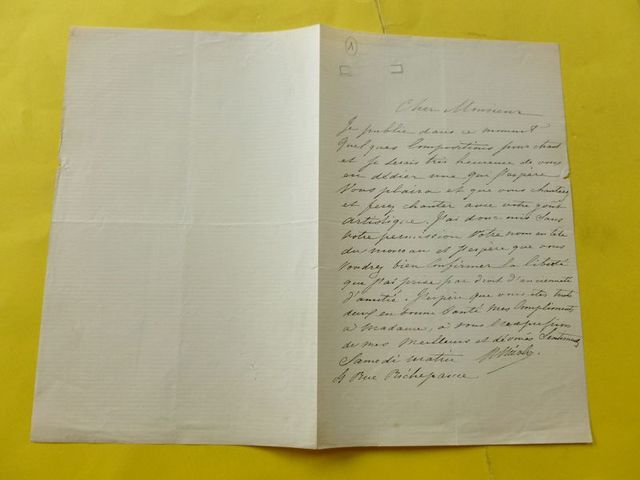 1
Cher Monsieur
Je publie dans ce moment
quelques Compositions pour chant
et je serais très heureuse de vous
en dédier une qui j'espère
vous plaira et que vous chanterez
et ferez chanter avec votre goût
artistique. J'ai donc mis sans
votre permission votre nom en tête
du morceau et j'espère que vous
voudrez bien confirmer la liberté
que j'ai prise par droit d'ancienneté
d'amitié. J'espère que vous êtes tous
deux en bonne santé mes compliments
à Madame, à vous l'expression
de mes meilleurs et dévoués sentiments
Samedi matin
4 Rue Richepance